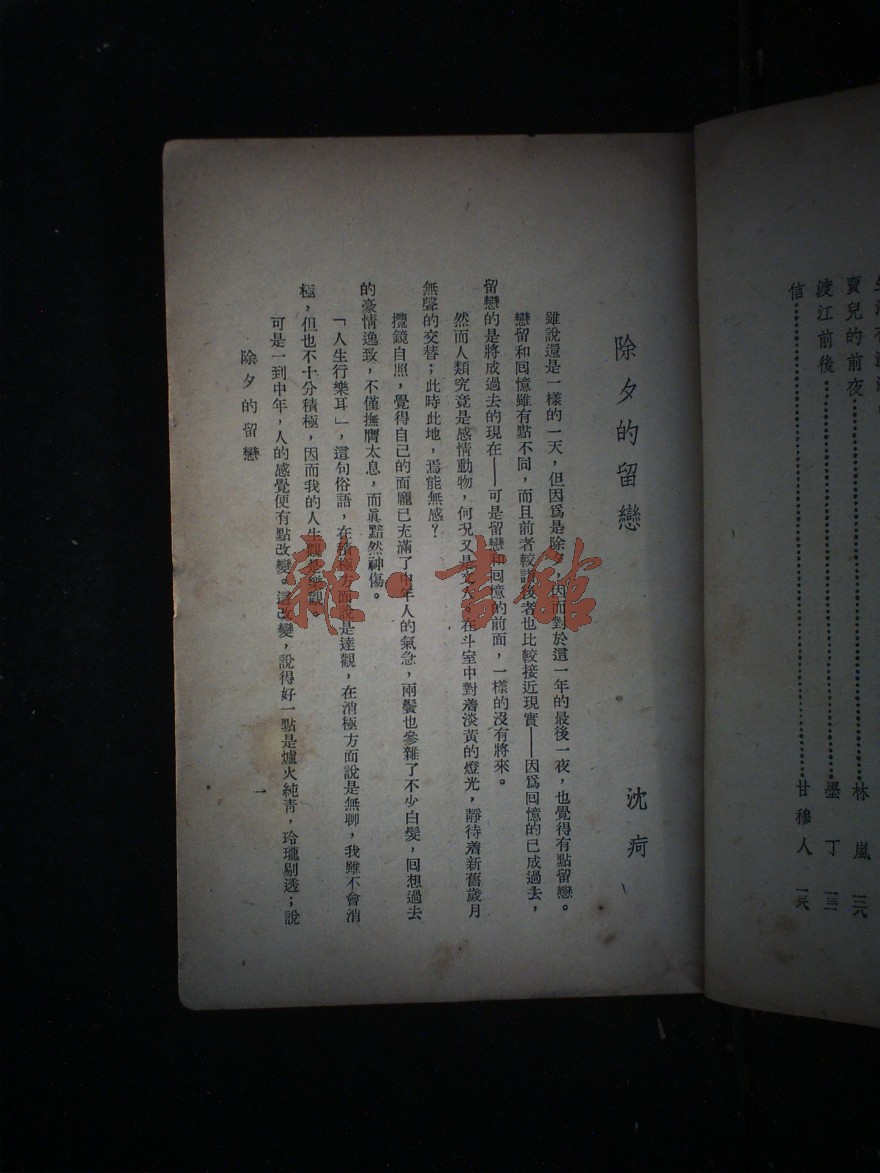 生活
賣兒的前夜………………林嵐
渡江前後………………墨丁
信………………甘穆人
除夕的留戀
沈疴
雖說還是一樣的一天，但因爲是除，因而對於這一年的最後一夜，也覺得有點留戀。
戀留和回憶雖有點不同，而且前者較諸後者也比較接近現實——因爲回憶的已成過去，
留戀的是將成過去的現在——可是留戀和回憶的前面，一樣的沒有將來。
然而人類究竟是感情動物，何況又是文人。在斗室中對着淡黃的燈光，靜待着新舊歲月
無聲的交替；此時此地，焉能無感？
攬鏡自照，覺得自己的面龐已充滿了中年人的氣息，兩鬢也參雜了不少白髮，回想過去
的豪情逸致，不僅撫膺太息，而眞黯然神傷。
「人生行樂耳」，這句俗語，在積極方面說是達觀，在消極方面說是無聊，我雖不會消
極，但也不十分積極，因而我的人生觀是樂觀。
可是一到中年，人的感覺便有點改變。這改變，說得好一點是爐火純靑，玲瓏剔透；說
除夕的留戀
一
雜·書館